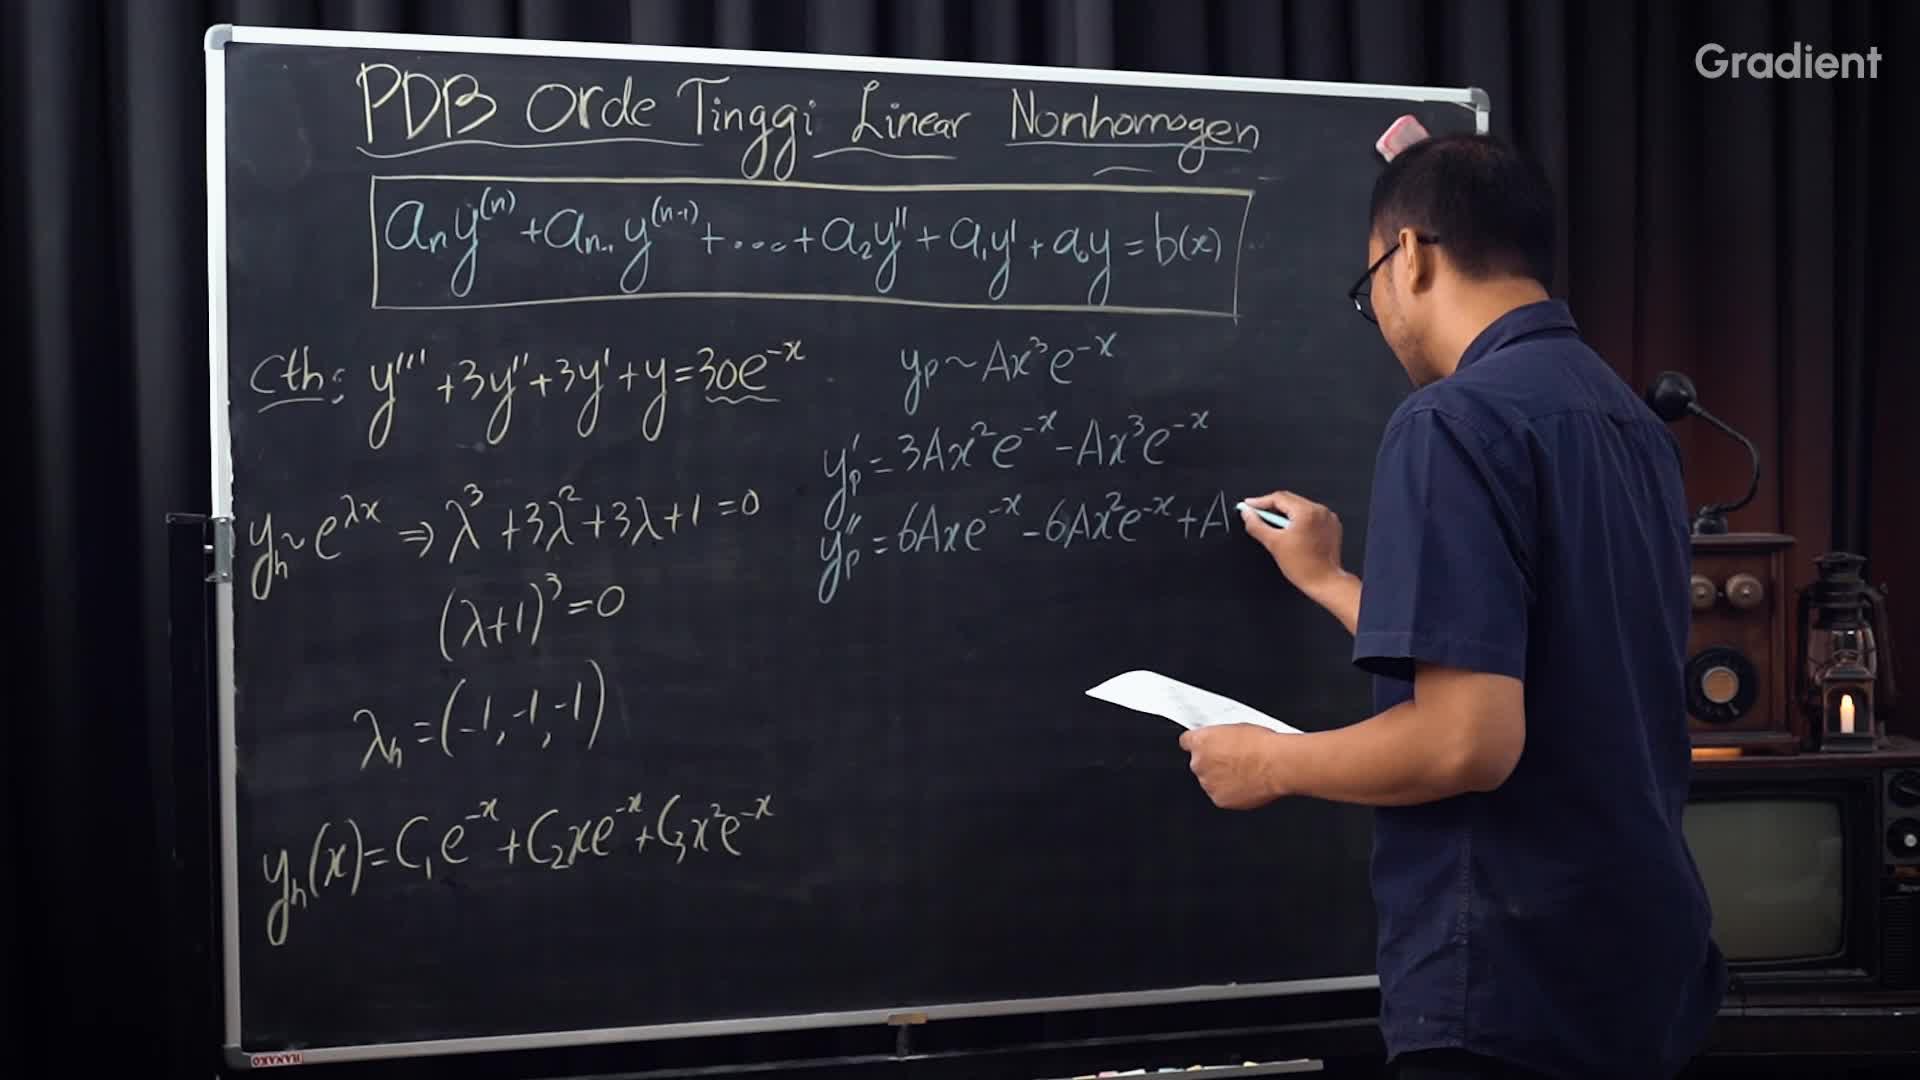 Gradient
PDB Orde Tinggi Linear Nonhomogen
aₙy⁽ⁿ⁾ + aₙ₋₁y⁽ⁿ⁻¹⁾ + .... + a₂y'' + a₁y' + a₀y = b(x)
Cth: y''' + 3y'' + 3y' + y = 30e⁻ˣ
yₕ ~ e^λx ⇒ λ³ + 3λ² + 3λ + 1 = 0
(λ+1)³ = 0
λₕ = (-1, -1, -1)
yₕ(x) = C₁e⁻ˣ + C₂xe⁻ˣ + C₃x²e⁻ˣ
yₚ ~ Ax³e⁻ˣ
yₚ' = 3Ax²e⁻ˣ - Ax³e⁻ˣ
yₚ'' = 6Axe⁻ˣ - 6Ax²e⁻ˣ + A
HANAKO